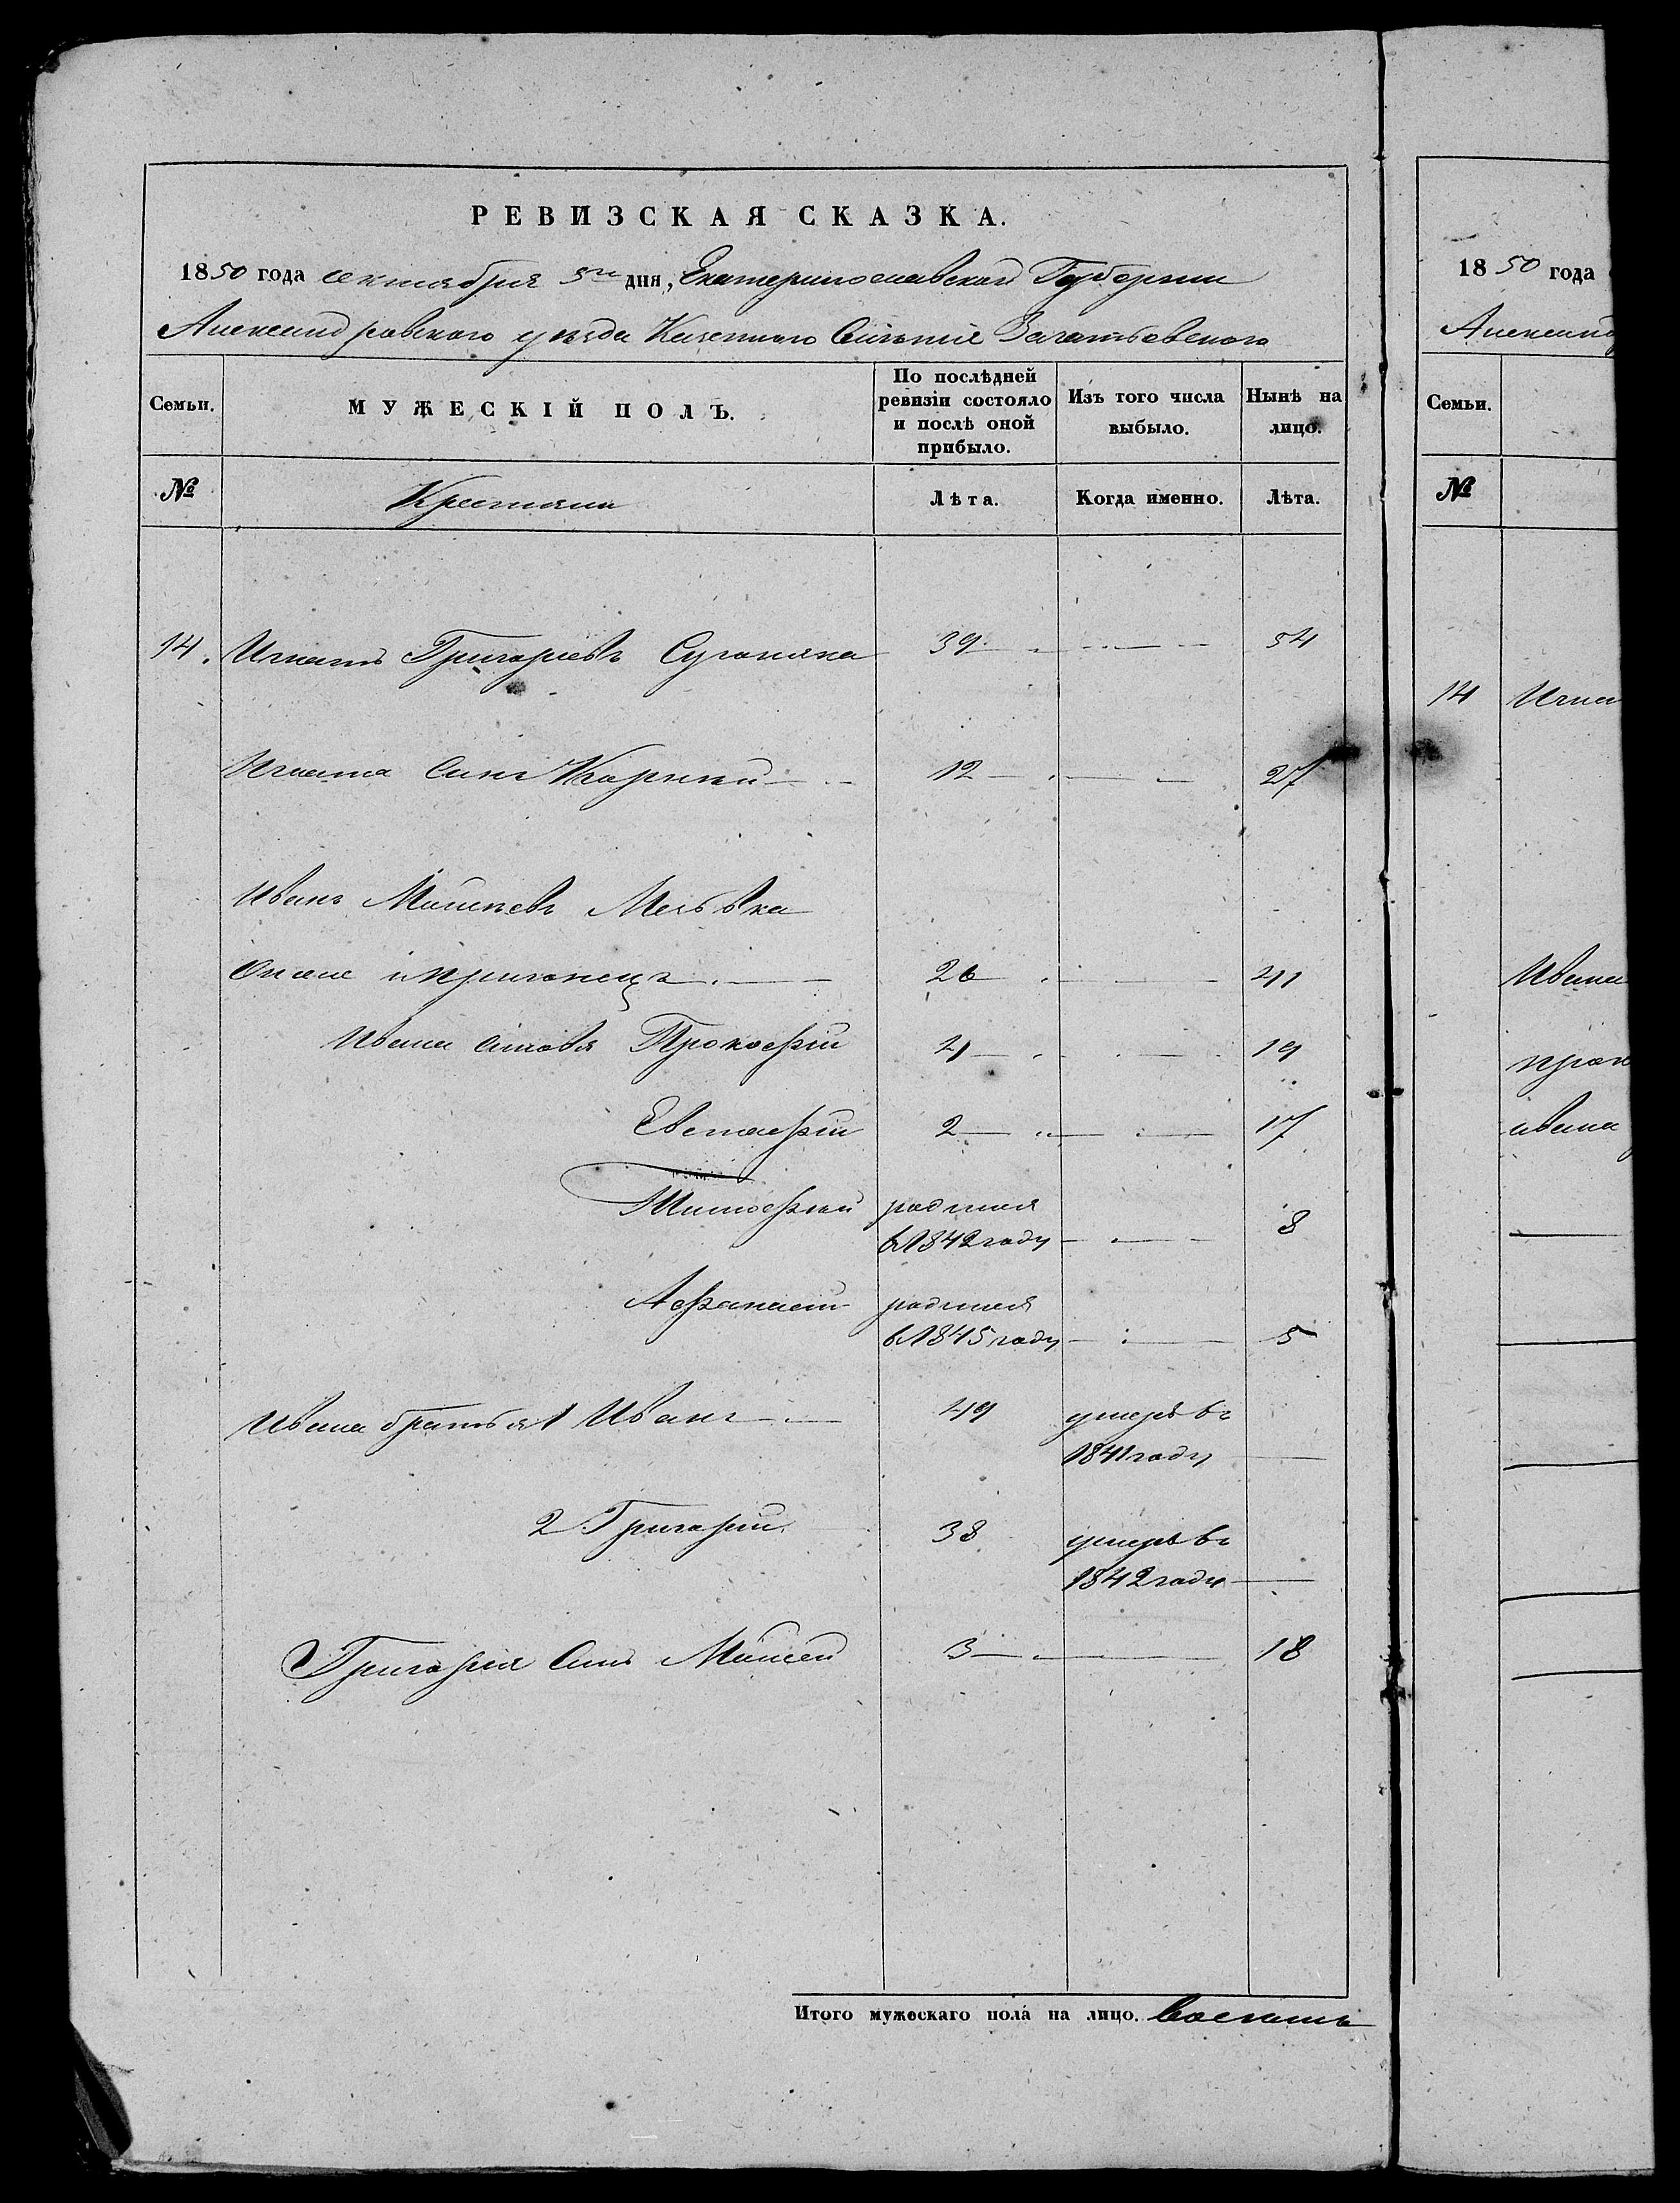 РЕВИЗСКАЯ СКАЗКА.
1850 года сентября 5го дня, Екатеринославской Губернии
Александровского уезда Казенного Селения Затишевского
Семьи.
МУЖЕСКІЙ ПОЛЪ.
По послѣдней ревизіи состояло и послѣ оной прибыло.
Изъ того числа выбыло.
Нынѣ на лицо.
№
Крестяни
Лѣта.
Когда именно.
Лѣта.
14. Игнатъ Григориевъ 39 54
Игната Синъ Корний 12 27
Иванъ Моисеевъ
26 41
Ивана синовя Прокофий 4 19
Евстафий 2 17
Тимофий родился
в 1842 году 8
Афанасий родился
в 1845 году 5
Ивана братья 1 Иванъ 49 умеръ въ
1841 году
2 Григорий 38 умеръ въ
1842 году
Григория Синъ Моисей 3 18
Итого мужескаго пола на лицо. восемь
1850 года
Александ
Семьи.
№
14 Игна
Ивана
ивана